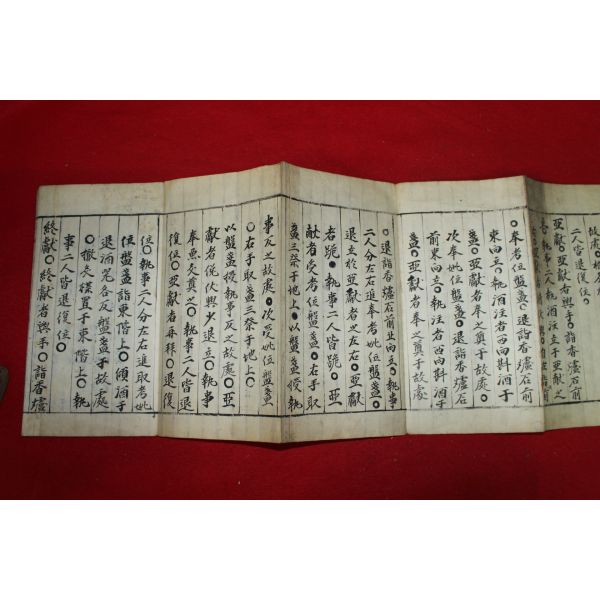 故處○
二人皆退復位○
亞獻○亞獻者盥手○詣香爐石前
○執事二人執酒注立于亞獻之
○奉考位盤盞○退詣香爐石前
東向立○執注者西向斟酒于
盞○亞獻者奉之奠于故處○
次奉妣位盤盞○退詣香爐石
前東向立○執注者西向斟酒于
盞○亞獻者奉之奠于故處
○退詣香爐石前北向立○執事
二人分左右進奉考妣位盤盞○
退立於亞獻者之左右○亞獻
者跪○執事二人皆跪○亞
獻者受考位盤盞○右手取
盞三祭于地上○以盤盞授執
事反之故處○次受妣位盤盞
○右手取盞三祭于地上○
以盤盞授執事反之故處○亞
獻者俛伏興少退立○執事
奉魚炙奠之○執事二人皆退
復位○亞獻者再拜○退復
位○執事二人分左右進取考妣
位盤盞詣東階上○傾酒于
退酒器各反盤盞于故處
○撤炙楪置于東階上○執
事二人皆退復位○
終獻○終獻者盥手○詣香爐